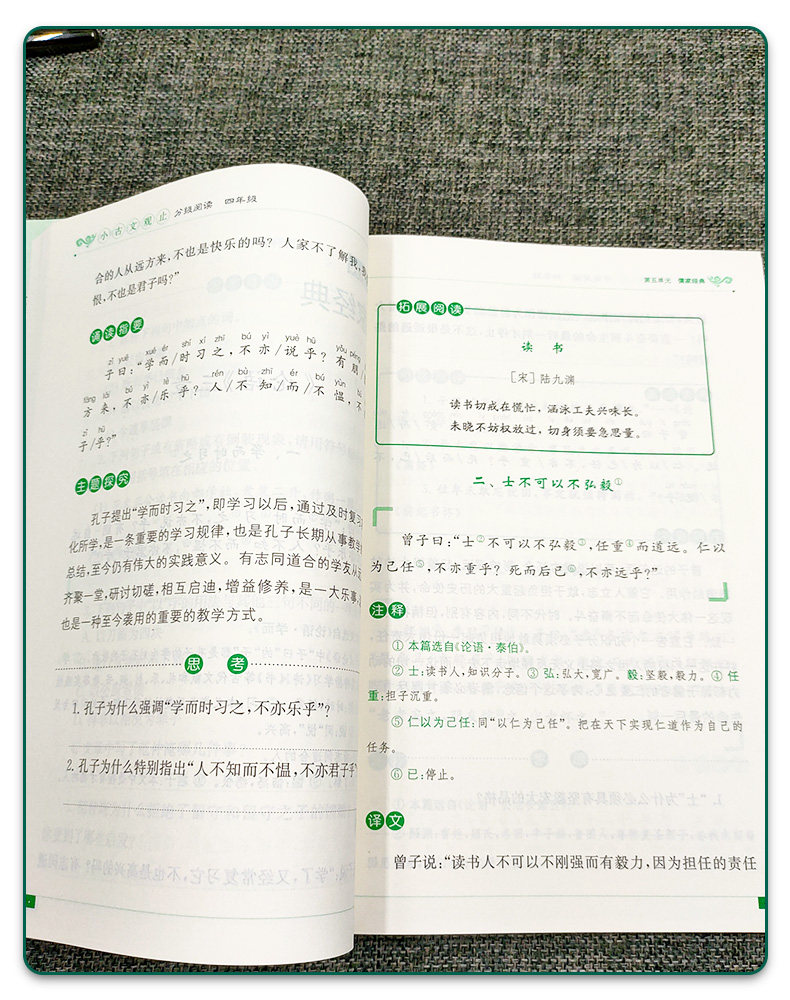 小古文观止 分级阅读 四年级
合的人从远方来，不也是快乐的吗？人家不了解我，我
恨，不也是君子吗？”
诵读指要
zǐ yuē xué ér shí xí zhī bú yì yuè hū yǒu péng
子曰：“学而/时习之，不亦/说乎？有朋/
fāng lái bú yì lè hū rén bù zhī ér bú yùn bú
方来，不亦/乐乎？人/不知/而/不愠，不
zǐ hū
子/乎？”
主题探究
孔子提出“学而时习之”，即学习以后，通过及时复习
化所学，是一条重要的学习规律，也是孔子长期从事教学
总结，至今仍有伟大的实践意义。有志同道合的学友从远
齐聚一堂，研讨切磋，相互启迪，增益修养，是一大乐事
也是一种至今袭用的重要的教学方式。
思考
1. 孔子为什么强调“学而时习之，不亦乐乎”？
2. 孔子为什么特别指出“人不知而不愠，不亦君子乎”
第五单元 儒家经典
拓展阅读
读书
［宋］陆九渊
读书切戒在慌忙，涵泳工夫兴味长。
未晓不妨权放过，切身须要急思量。
二、士不可以不弘毅①
曾子曰：“士②不可以不弘毅③，任重④而道远。仁以
为己任⑤，不亦重乎？死而后已⑥，不亦远乎？”
注释
① 本篇选自《论语·泰伯》。
② 士：读书人，知识分子。③ 弘：弘大，宽广。毅：坚毅，毅力。④ 任
重：担子沉重。
⑤ 仁以为己任：同“以仁为己任”。把在天下实现仁道作为自己的
任务。
⑥ 已：停止。
译文
曾子说：“读书人不可以不刚强而有毅力，因为担任的责任